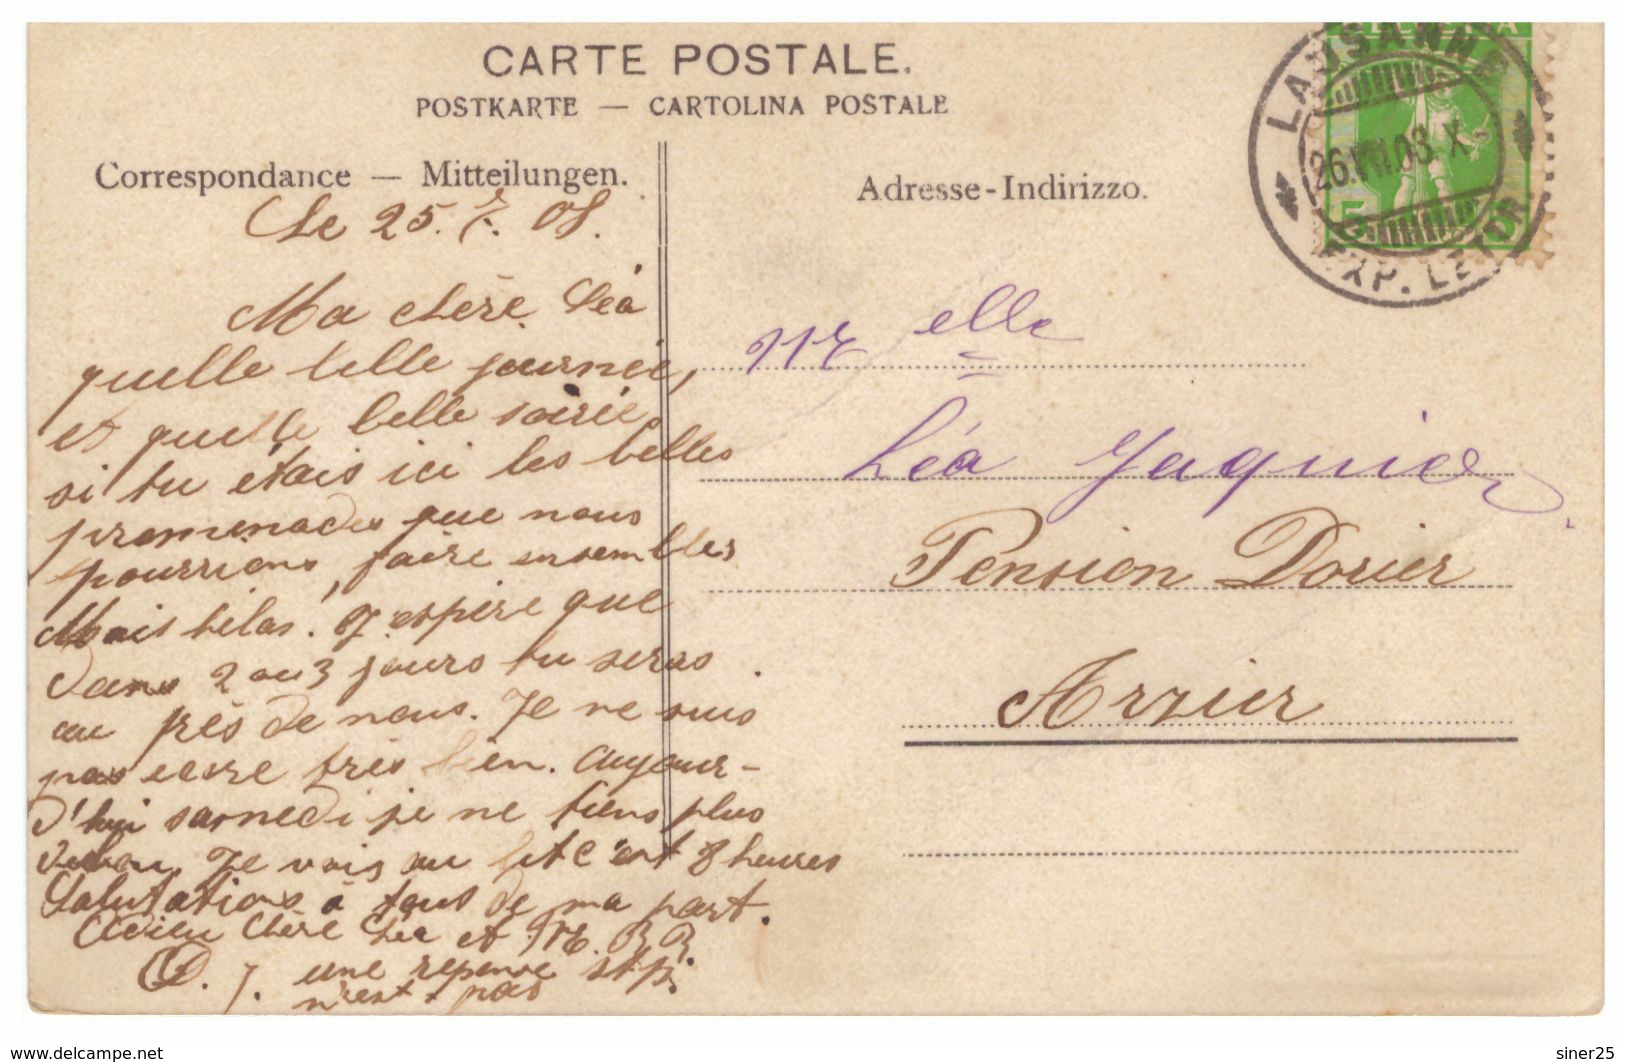 CARTE POSTALE.
POSTKARTE — CARTOLINA POSTALE
Correspondance — Mitteilungen.
Adresse-Indirizzo.
LAUSANNE
EXP. LETTR.
5 5
Le 25. 08.
Ma chère Léa
quelle belle journée,
et quelle belle soirée
si tu étais ici les belles
promenades que nous
pourrions, faire ensembles
Mais hélas! J'espère que
dans 2 ou 3 jours tu seras
au près de nous. Je ne suis
pas encore très bien. aujour-
d'hui samedi je ne tiens plus
Je vais au lit c'est 8 heures
Salutations à tous de ma part.
Adieu chère Léa et
J. une reponse stp.
n'est pas
Mr elle
Léa Jaquier
Pension Dorier
Arzier
www.delcampe.net
siner25